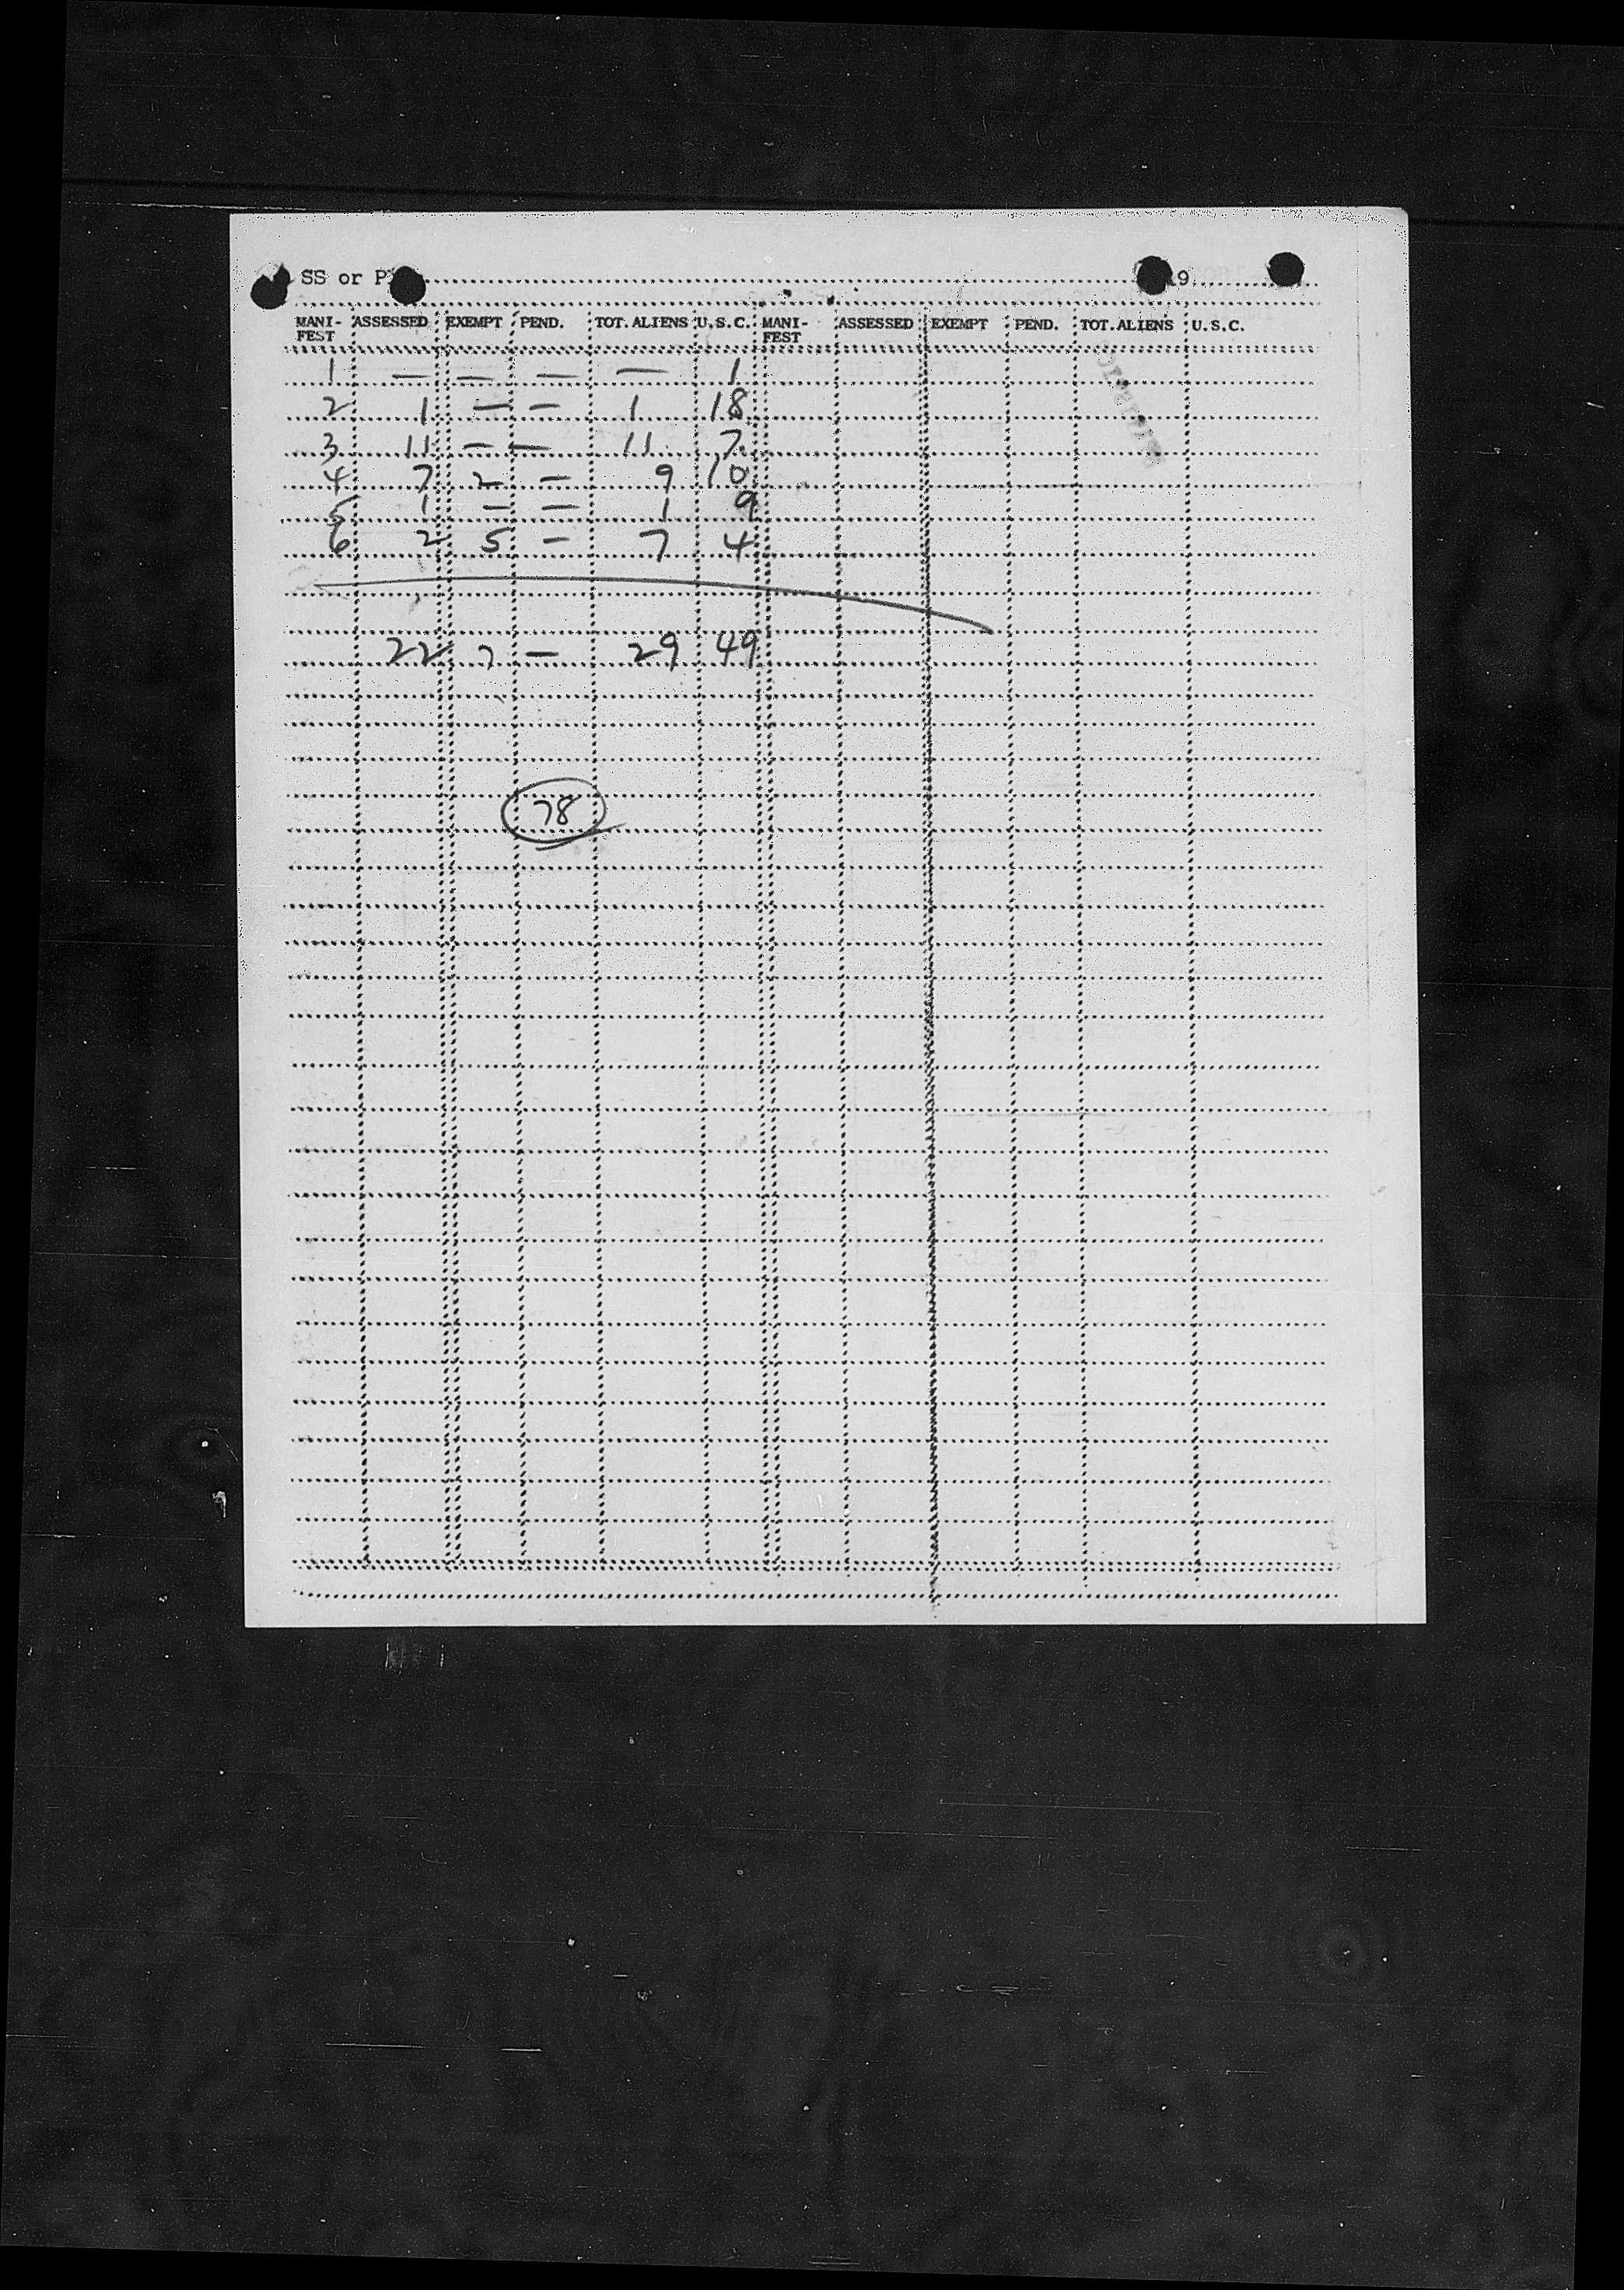 SS or P 19
MANI-FEST ASSESSED EXEMPT PEND. TOT. ALIENS U.S.C. MANI-FEST ASSESSED EXEMPT PEND. TOT. ALIENS U.S.C.
1 — — — — 1
2 1 — — 1 18
3 11 — — 11 7
4 7 2 — 9 10
5 1 — — 1 9
6 2 5 — 7 4
22 7 — 29 49
78